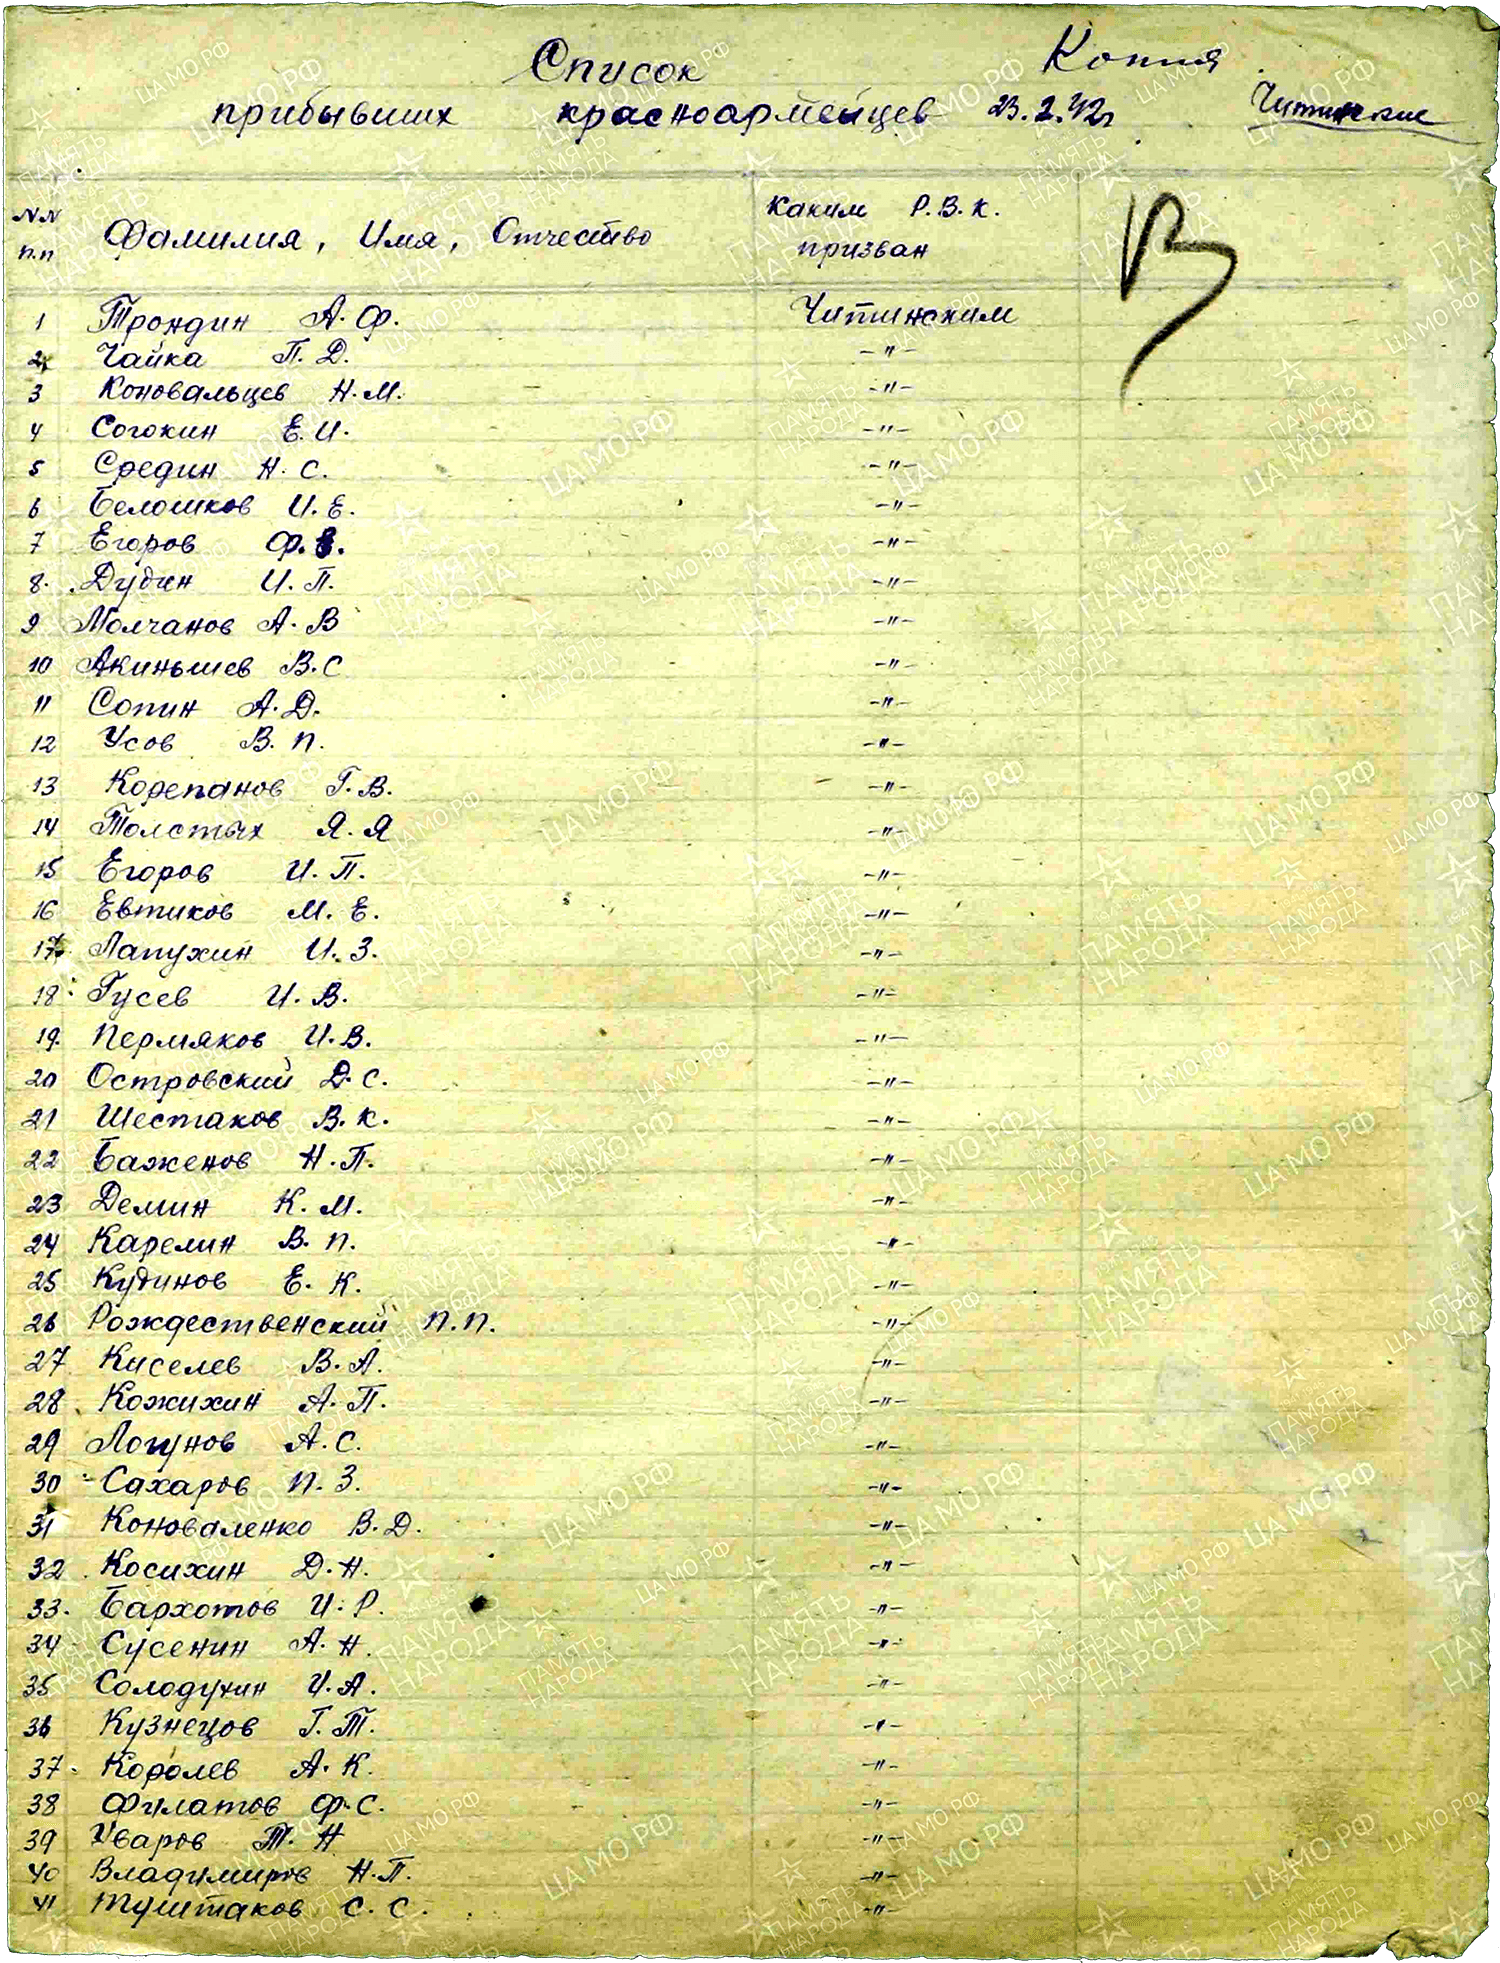 Список Копия
прибывших красноармейцев 23.2.42г Читинские
NN п.п Фамилия, Имя, Отчество Каким Р.В.К. призван
1 Трондин А.Ф. Читинским
2 Чайка П.Д. -"-
3 Коновальцев Н.М. -"-
4 Согокин Е.И. -"-
5 Средин Н.С. -"-
6 Белошков И.Е. -"-
7 Егоров Ф.Е. -"-
8. Дудин И.П. -"-
9 Молчанов А.В -"-
10 Акиньшев В.С -"-
11 Сопин А.Д. -"-
12 Усов В.П. -"-
13 Корепанов Г.В. -"-
14 Толстых Я.Я -"-
15 Егоров И.П. -"-
16 Евтиков М.Е. -"-
17 Лапухин И.З. -"-
18 Гусев И.В. -"-
19. Пермяков И.В. -"-
20 Островский Д.С. -"-
21 Шестаков В.К. -"-
22 Баженов Н.П. -"-
23 Демин К.М. -"-
24 Карелин В.П. -"-
25 Кудинов Е.К. -"-
26 Рождественский П.П. -"-
27 Киселев В.А. -"-
28 Кожихин А.П. -"-
29 Логунов А.С. -"-
30 Сахаров П.З. -"-
31 Коноваленко В.Д. -"-
32 Косихин Д.Н. -"-
33. Бархотов И.Р. -"-
34 Сусенин А.Н. -"-
35 Солодухин И.А. -"-
36 Кузнецов Г.Т. -"-
37 Королев А.К. -"-
38 Филатов Ф.С. -"-
39 Уваров Т.Н -"-
40 Владимиров Н.П. -"-
41 Туштаков С.С. -"-